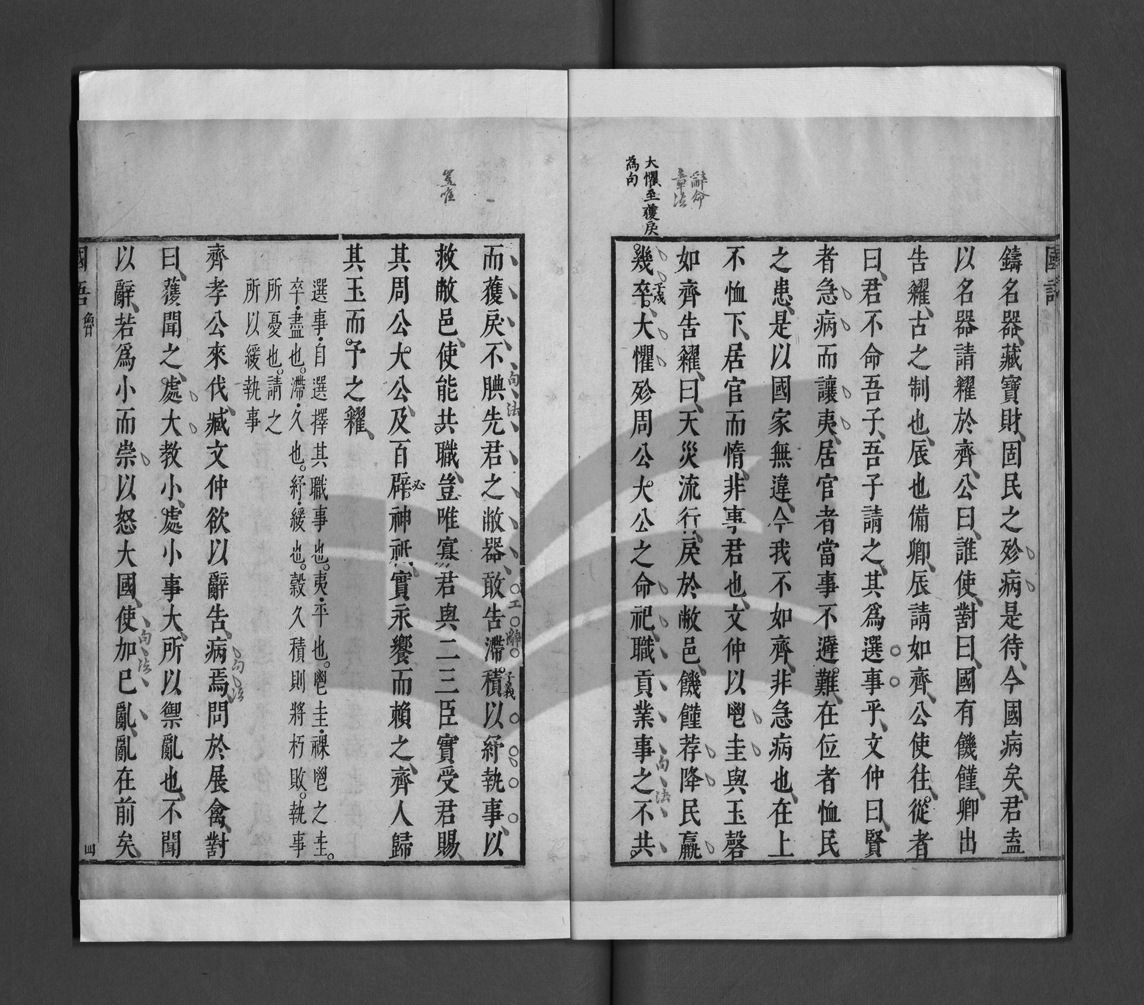 國語
鑄名器藏寶財固民之殄病是待今國病矣君盍
以名器請糴於齊公曰誰使對曰國有饑饉卿出
告糴古之制也辰也備卿辰請如齊公使往從者
曰君不命吾子吾子請之其為選事乎文仲曰賢
者急病而讓夷居官者當事不避難在位者恤民
之患是以國家無違今我不如齊非急病也在上
不恤下居官而惰非事君也文仲以鬯圭與玉磬
辭命
章法
如齊告糴曰天災流行戾於敝邑饑饉荐降民羸
大懼至穫戾
為句
幾卒大懼殄周公大公之命祀職貢業事之不共
句法
而獲戾不腆先君之敝器敢告滯積以紓執事以
句法
救敝邑使能共職豈唯寡君與二三臣實受君賜
其周公大公及百辟神祇實永饗而賴之齊人歸
其玉而予之糴
選事自選擇其職事也夷平也鬯圭祼鬯之圭
卒盡也滯久也紓緩也穀久積則將朽敗執事
所憂也請之
所以緩執事
齊孝公來伐臧文仲欲以辭告病焉問於展禽對
句法
曰獲聞之處大教小處小事大所以禦亂也不聞
以辭若為小而崇以怒大國使加已亂亂在前矣
句法
國語
魯
四